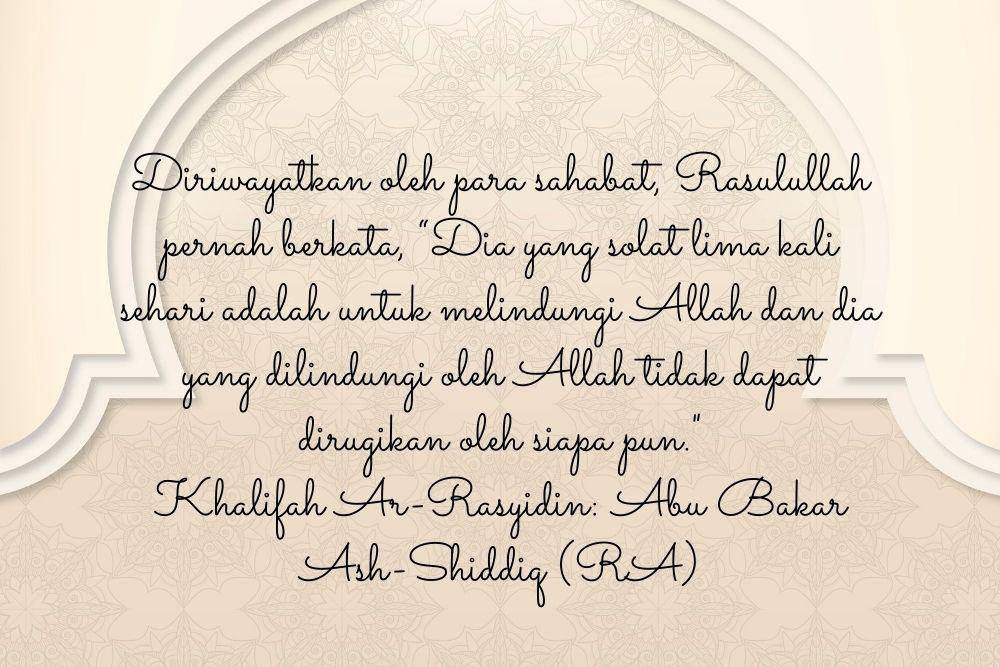 Diriwayatkan oleh para sahabat, Rasulullah
pernah berkata, "Dia yang solat lima kali
sehari adalah untuk melindungi Allah dan dia
yang dilindungi oleh Allah tidak dapat
dirugikan oleh siapa pun."
Khalifah Ar-Rasyidin: Abu Bakar
Ash-Shiddiq (RA)